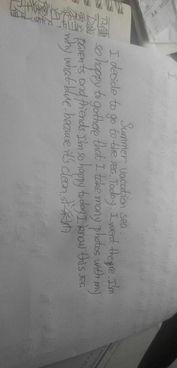 Summer vacation sea
I decide to go to the sea. Today I went there. I'm
so happy to go there that I take many photos with my
parents and friends. I'm so happy today. I know this sea
why what blue because it's clean.